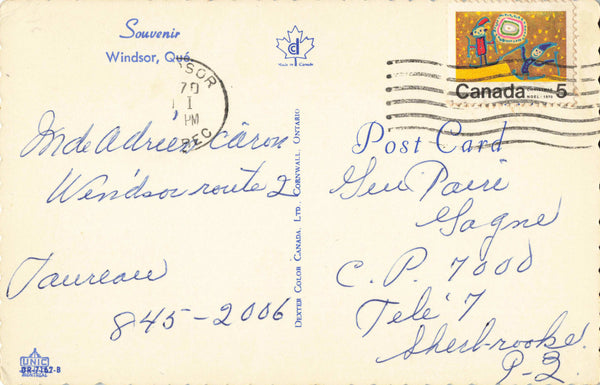 Souvenir
Windsor, Qué.
Made in Canada
SOR
70
I
PM
EC
Canada 5
NOEL 1970
Mde Adrien Caron
Windsor route 2
Taureau
845-2006
DEXTER COLOR CANADA, LTD. CORNWALL, ONTARIO
Post Card
Gagne
C. P. 7000
Télé 7
Sherbrooke.
P-2.
UNIC
MONTREAL